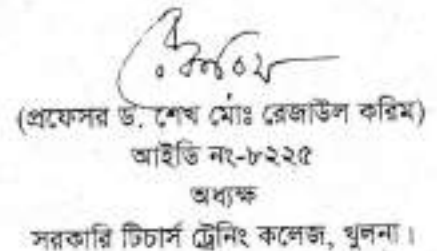 (প্রফেসর ড. শেখ মোঃ রেজাউল করিম)
আইডি নং-৮২২৫
অধ্যক্ষ
সরকারি টিচার্স ট্রেনিং কলেজ, খুলনা।